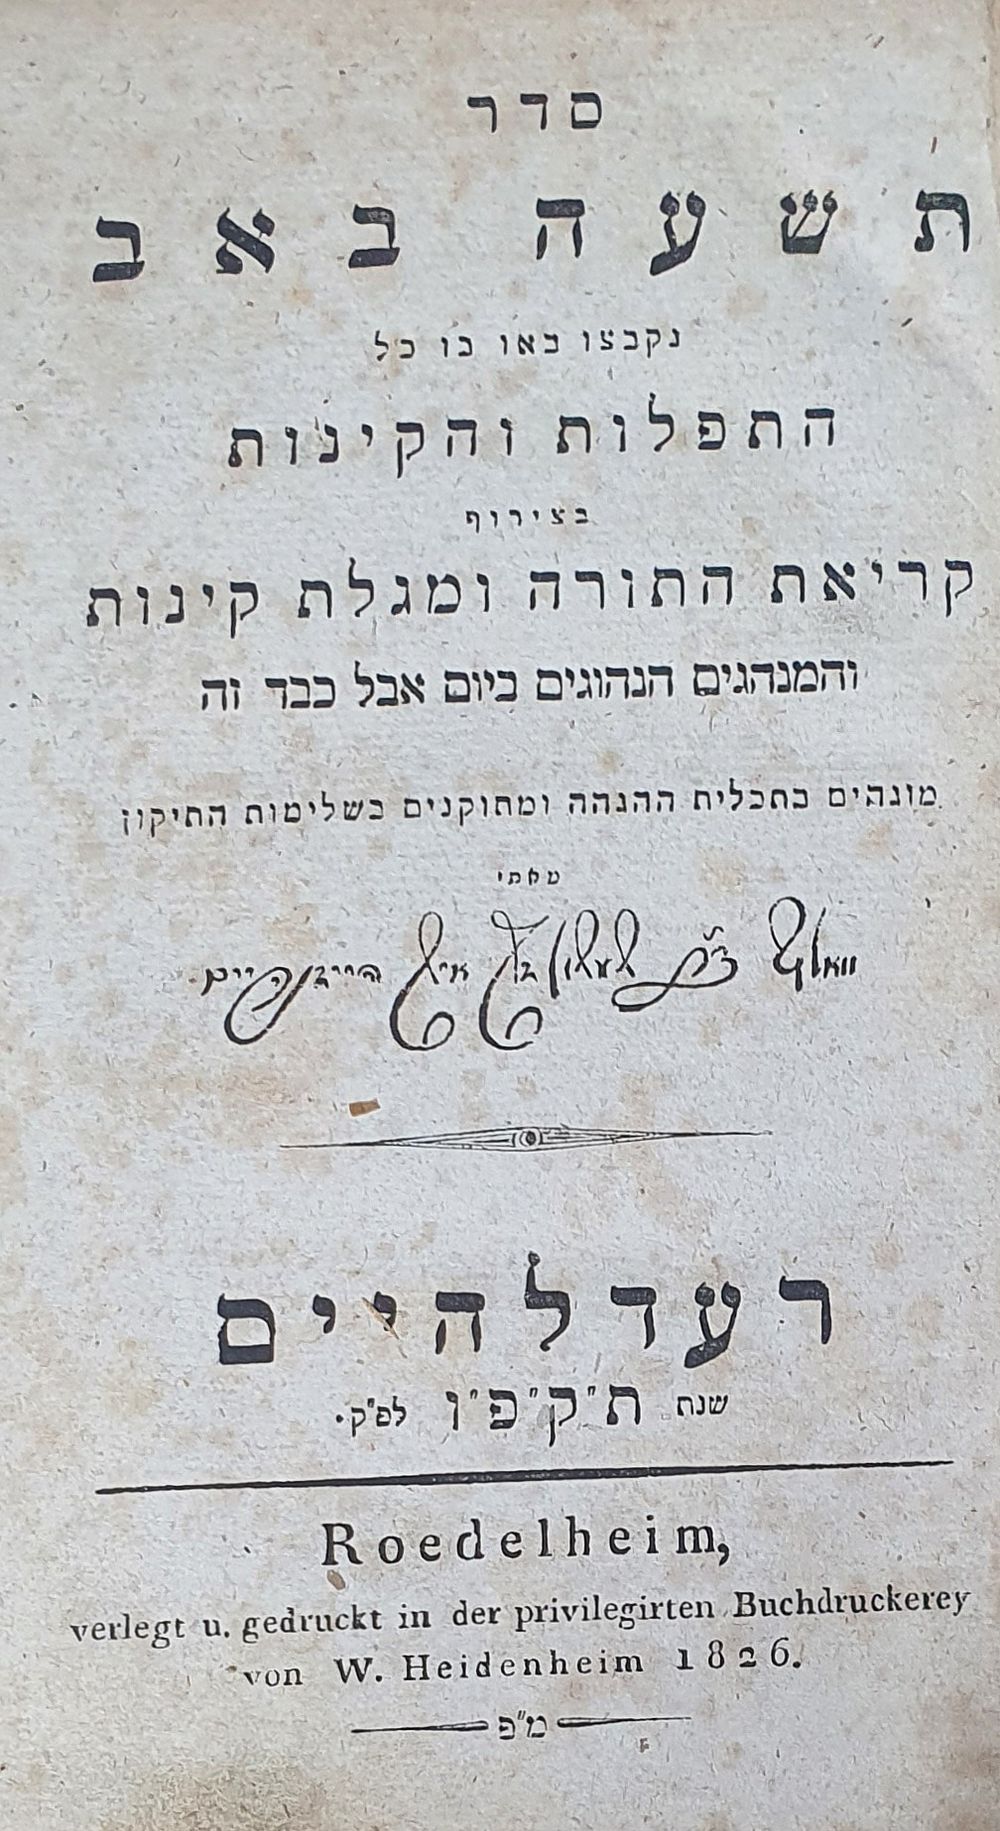 סדר
תשעה באב
נקבצו באו בו כל
התפלות והקינות
בצירוף
קריאת התורה ומגלת קינות
והמנהגים הנהוגים ביום אבל כבד זה
מוגהים בתכלית ההגהה ומתוקנים בשלימות התיקון
מאתי
וואלף היידנהיים
רעדלהיים
שנת ת"ק"פ"ו לפ"ק.
Roedelheim,
verlegt u. gedruckt in der privilegirten Buchdruckerey
von W. Heidenheim 1826.
מ"פ